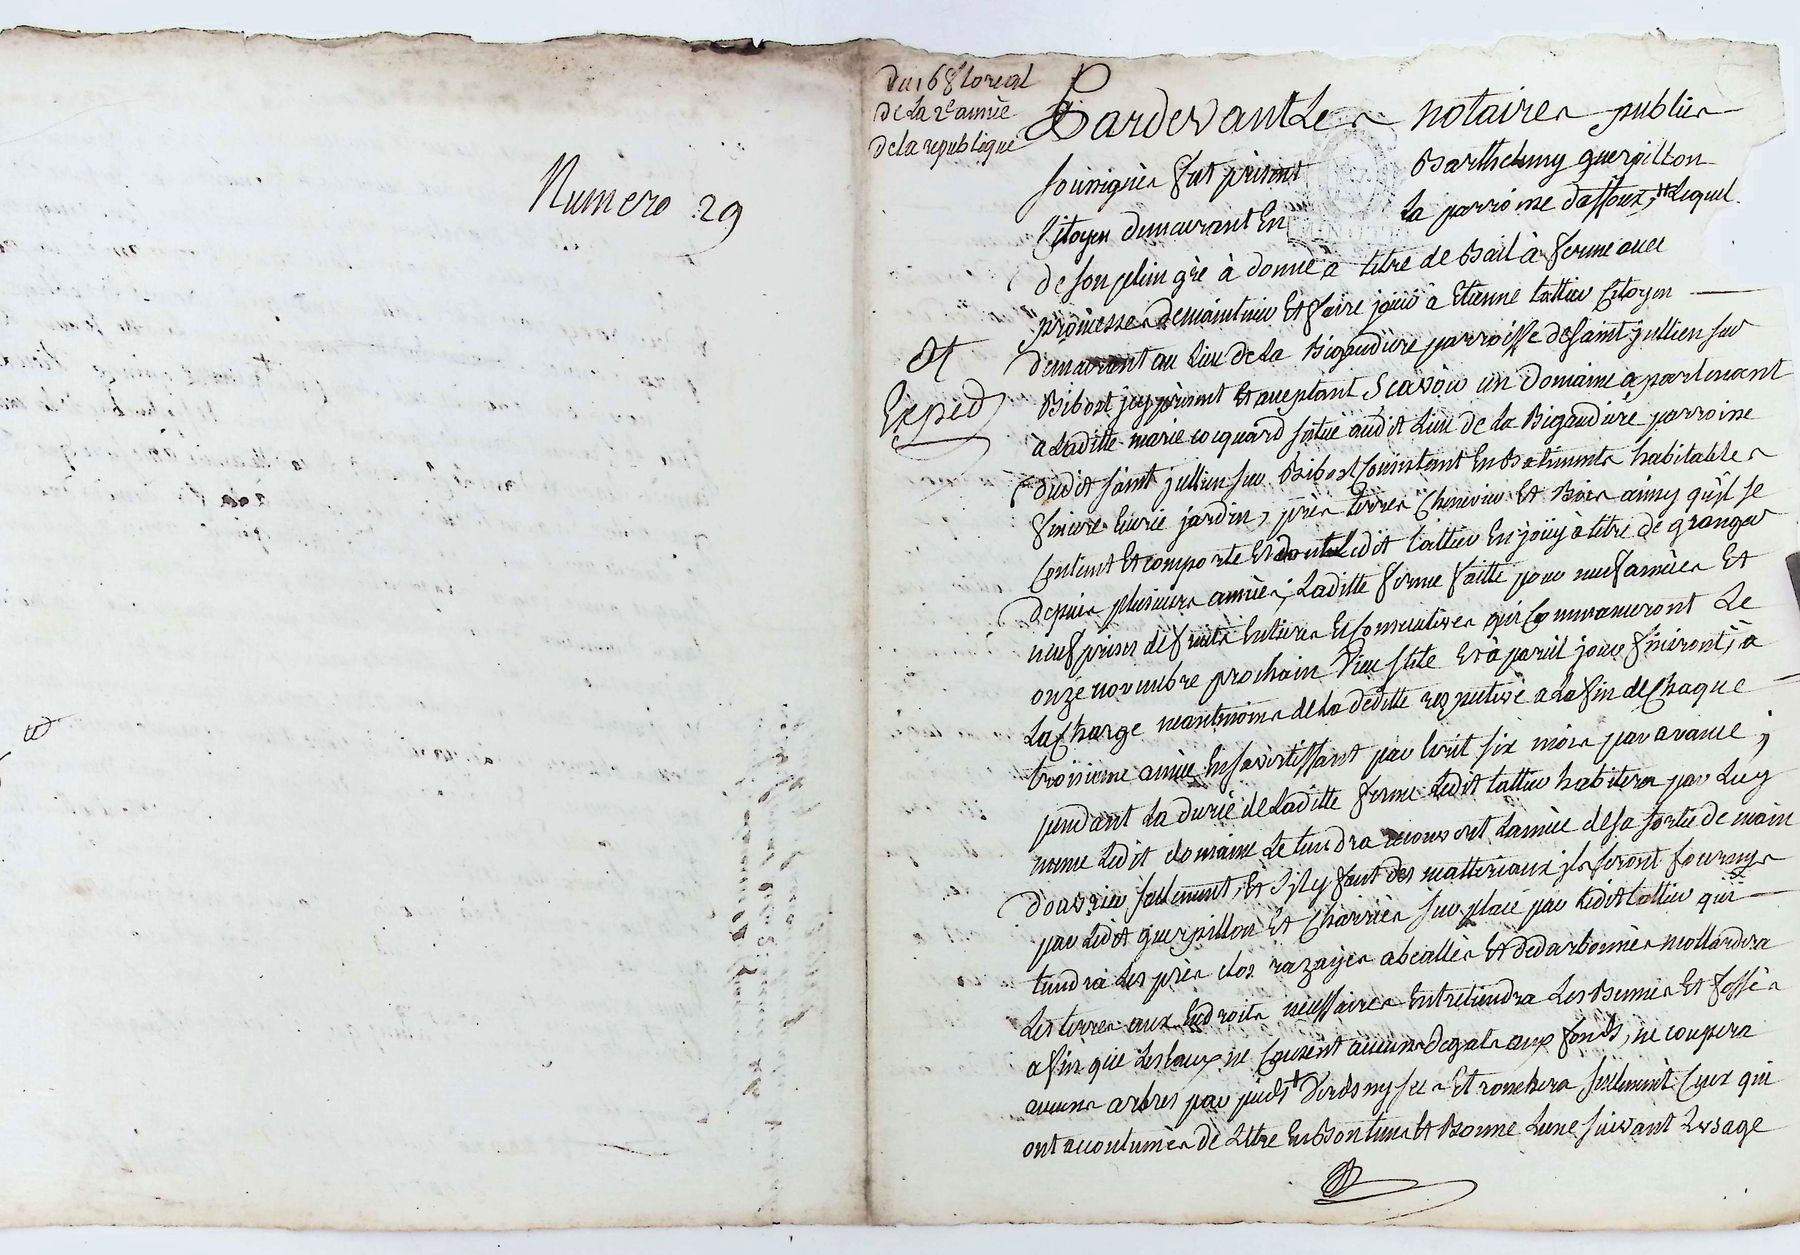 Numero 29
Du 16 floreal
de la 2e année
de la republique
Pardevant Les notaires publics
soussignés fut présent Barthelemy guerpillon
Citoyen demeurant En La parroisse daffoux, Lequel
de son plein gré à donné a titre de Bail à ferme avec
promesse de maintenir Et faire jouir à Etienne tattier Citoyen
demeurant au Lieu de La Bigaudiere parroisse de saint jullien sur
Et
Exped
Bibost jcy présent Et aceptant Scavoir un Domaine apartenant
à Laditte marie cocquard situé audit Lieu de La Bigaudiere parroisse
dudit saint jullien sur Bibost Consistant En Batiments habitables
jardin, prés terres Chenevier Et Bois ainsy qu'jl se
Contient Et comporte Et dont Ledit tattier En jouy à titre de granger
depuis plusieurs années, Laditte ferme faitte pour neuf années Et
neuf prises de fruits Entieres Et Consecutives qui Commanceront Le
onze novembre prochain vieu stile Et à pareil jour finiront, à
La Charge neantmoins de La deditte respective a La fin de Chaque
troisieme année En savertissant par Ecrit six mois par avance;
pendant La durée de Laditte ferme Ledit tattier habitera par Luy
meme Ledit domaine Le tiendra recouvert Lannée de sa sortie de main
douvrier seulement, Et S'jl y faut des matteriaux jls seront fournys
par Ledit guerpillon Et Charriés sur place par Ledit tattier qui
tiendra Les prés clos razayés abeallés Et dedarbonnés mollardera
Les terres aux Endroits necessaires Entretiendra Les Et fossés
afin que Les Eaux ne Causent aucuns degats aux fonds, ne coupera
aucuns arbres par pieds Et ronchera seulement Ceux qui
ont accoutumés de Lêtre En Bon tems Et Bonne Lune suivant Lusage